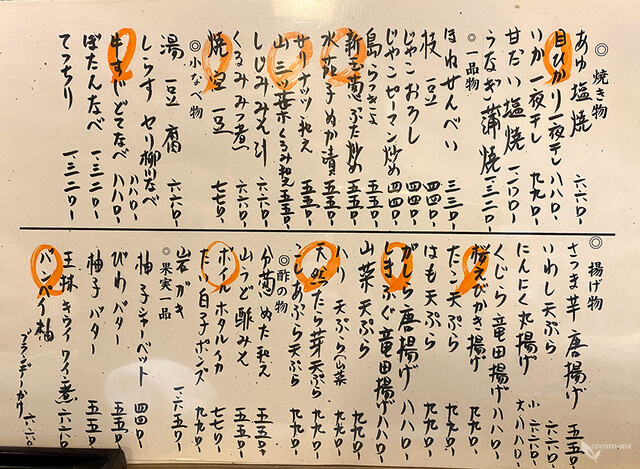 ◎焼き物
あゆ塩焼 六六〇ー
目ひかり一夜干し 八八〇ー
いか一夜干し 九九〇ー
甘だい塩焼 一、一〇〇ー
うなぎ蒲焼 一、三二〇ー
◎一品物
ほねせんべい 三三〇ー
枝豆 四四〇ー
じゃこおろし 四四〇ー
じゃこピーマン炒め 四四〇ー
島らっきょ 五五〇ー
新玉葱ぶた炒め 五五〇ー
水茄子ぬか漬 五五〇ー
サーナッツ和え
山三ッ葉くるみ和え 五五〇ー
しじみみそ汁 六六〇ー
くるみみつ煮 六六〇ー
焼空豆 七七〇ー
◎小なべ物
湯豆腐 六六〇ー
しらすセリ柳川なべ 八八〇ー
牛すじどてなべ 八八〇ー
ぼたんなべ 一、三二〇ー
てっちり 一、三二〇ー
◎揚げ物
さつま芋唐揚げ 五五〇ー
いわし天ぷら 六六〇ー
にんにく丸揚げ 小六六〇ー 大八八〇ー
くじら竜田揚げ 八八〇ー
桜えびかき揚げ 九九〇ー
たこ天ぷら 九九〇ー
はも天ぷら 九九〇ー
がしら唐揚げ 八八〇ー
しまふぐ竜田揚げ 八八〇ー
山菜天ぷら 九九〇ー
天ぷら(山菜 九九〇ー
天然たら芽天ぷら 九九〇ー
こしあぶら天ぷら 九九〇ー
◎酢の物
分葱ぬた和え 五五〇ー
山うど酢みそ 五五〇ー
ボイルホタルイカ 七七〇ー
たい白子ポンズ 九九〇ー
岩がき 一、六五〇ー
◎果実一品
柚子シャーベット 四四〇ー
びわバター 五五〇ー
柚子バター 五五〇ー
王林キウイワイン煮 六六〇ー
バンペイ柚 ブランデーかり 六六〇ー
cocoro-ma